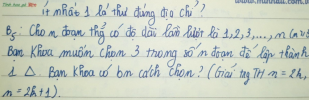 ít nhất 1 lá thư đúng địa chỉ?
B5: Cho n đoạn thẳng có độ dài lần lượt là 1,2,3,..., n (n
Bạn Khoa muốn chọn 3 trong số n đoạn để lập thành
1 Δ. Bạn Khoa có bn cách chọn? (Giải TH n = 2k,
n = 2k+1).